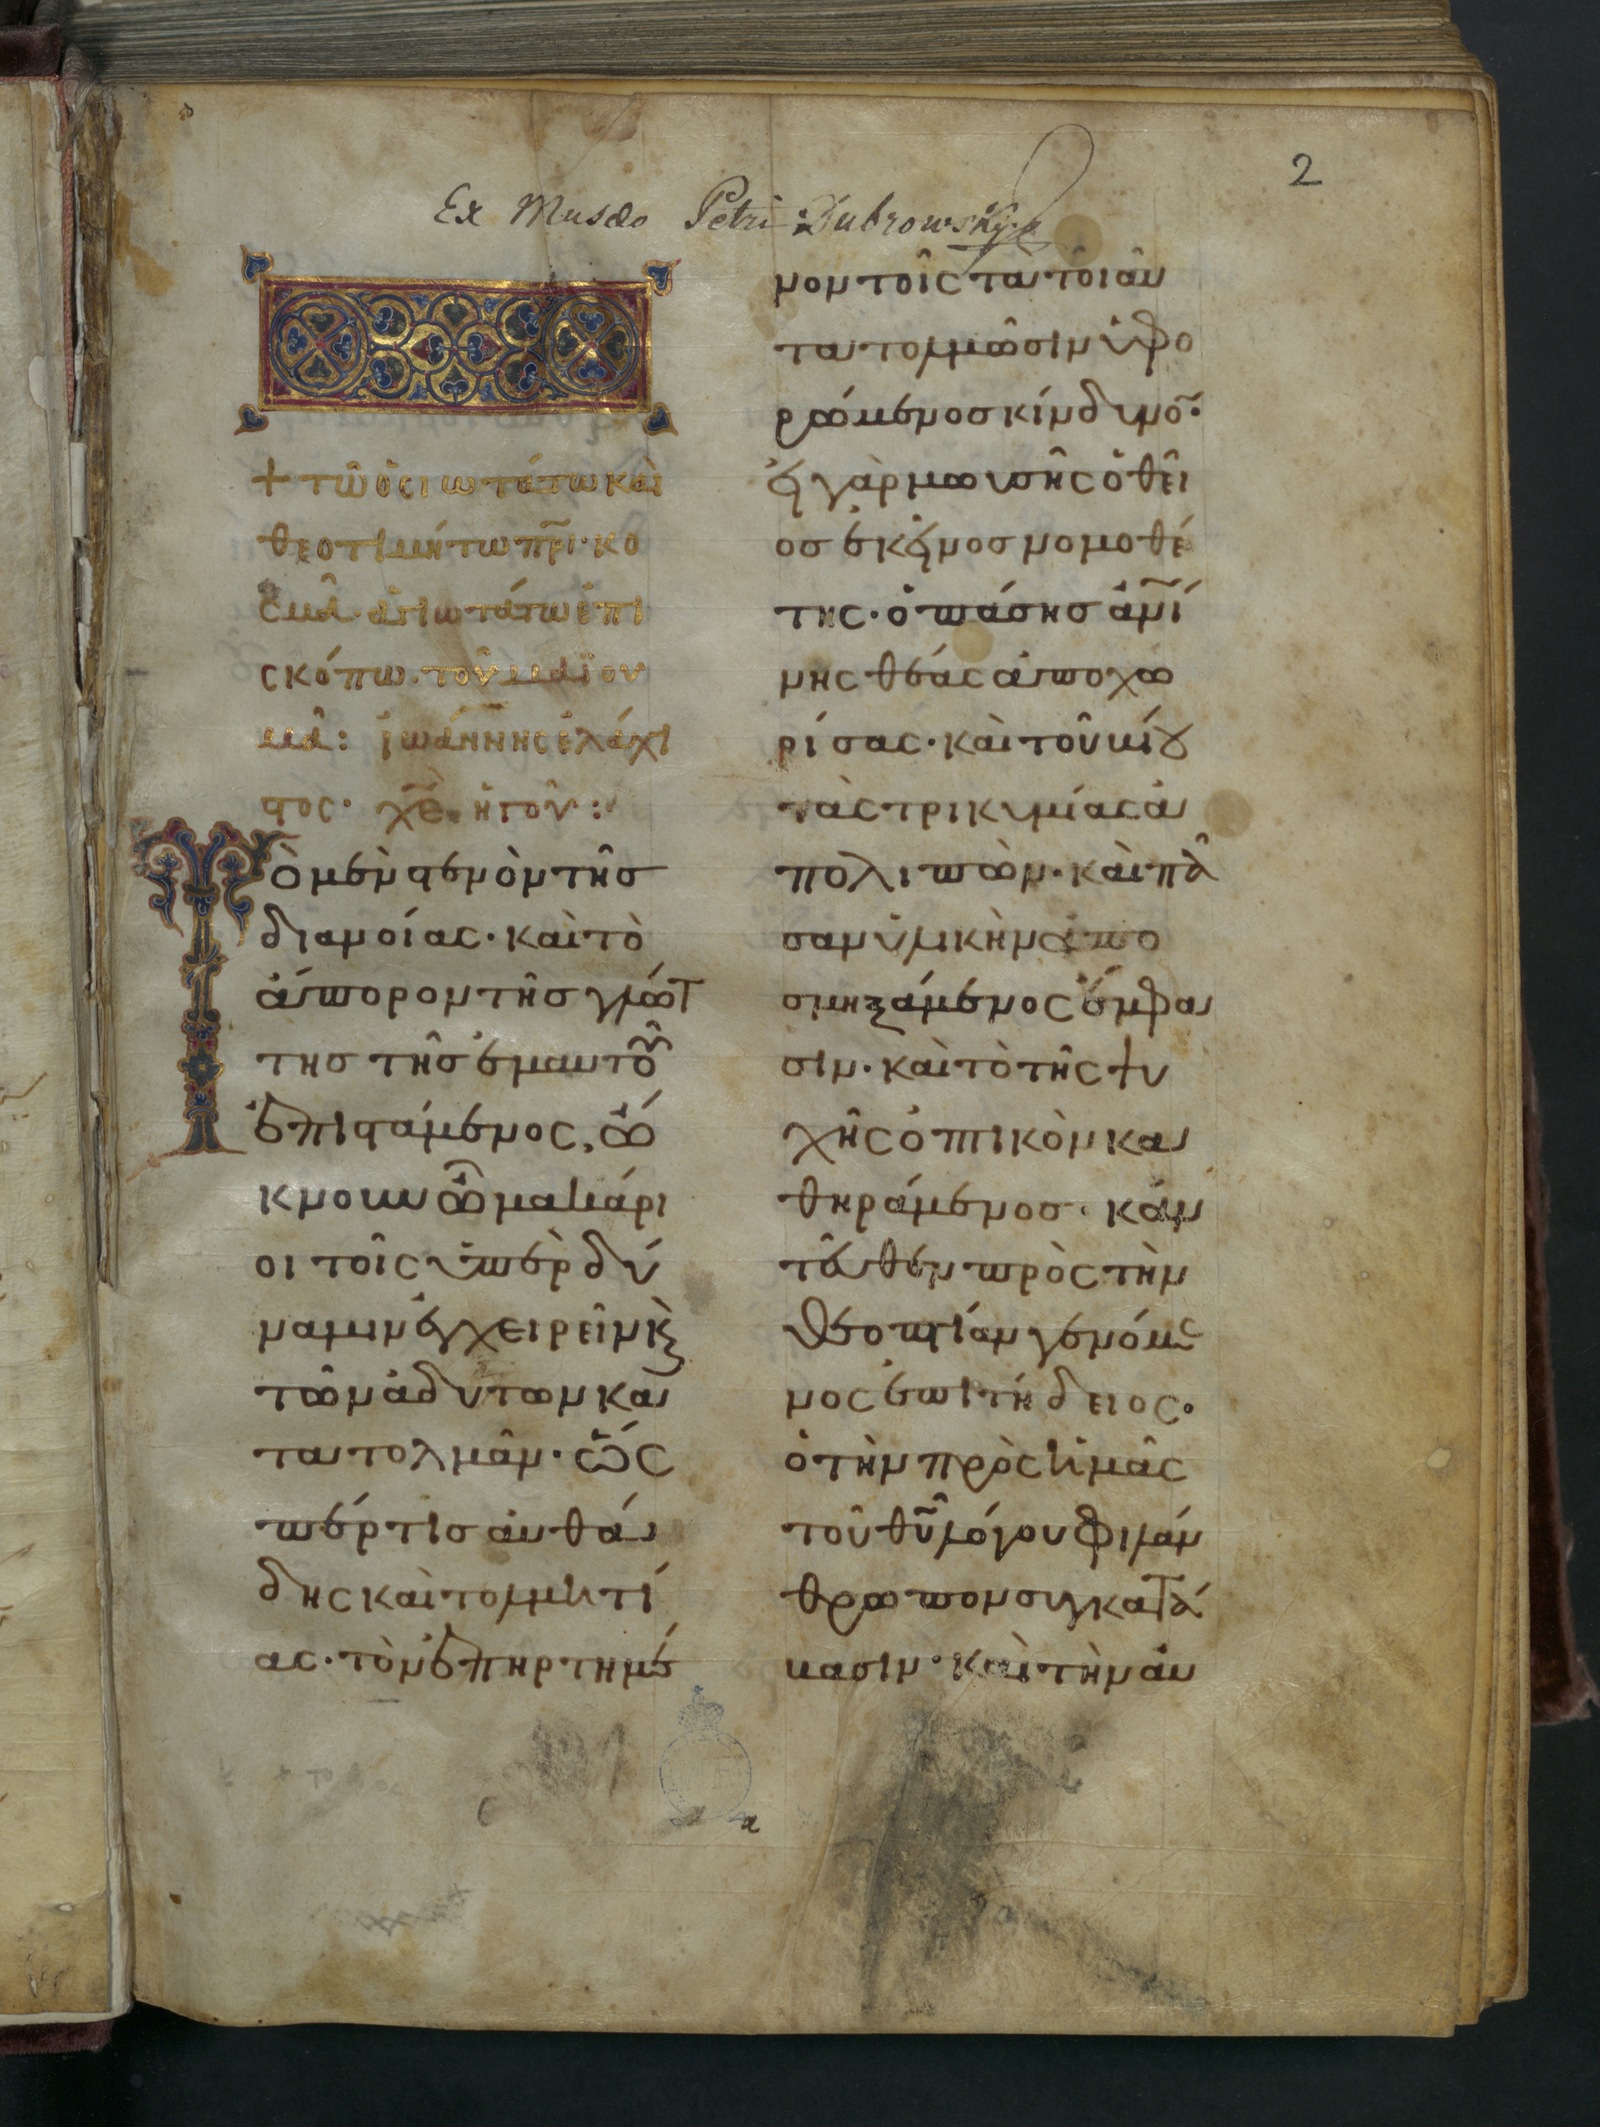 2
Ex Musæo Petri Dubrowsky.
+ τῶ ὁσιωτάτω καὶ
θεοτιμήτω πρι· κο
σμᾶ· ἁγιωτάτω ἐπι
σκόπω· τοῦ μαϊου
μᾶ: ἰωάννης ἐλάχι
στος· χε. ἡγοῦν:
Τὸ μὲν στενὸν τῆσ
διανοίας· καὶ τὸ
ἄπορον τῆσ γλώτ
τησ τῆσ ἐμαυτοῦ
ἐπιστάμενος, ὤ
κνουν ὦ μακάρι
οι τοῖς ὑπὲρ δύ
ναμιν ἐγχειρεῖν κὶ
τῶν ἀδύτων κα
τατολμᾶν· ὥς
πέρ τισ αὐθά
δης καὶ τολμητί
ας· τὸν ἐπηρτημέ
νον τοῖς τὰ τοιαῦ
τα τολμῶσιν ὑφο
ρώμενοσ κίνδυνον·
εἰ γὰρ μωυσῆς ὁ θεῖ
οσ ἐκεῖνοσ νομοθέ
της· ὁ πάσησ ἀνί
νης θέας ἀποχω
ρίσας· καὶ τοῦ βίου
τὰς τρικυμίας ἀ
πολιπὼν· καὶ πᾶ
σαν ὑλικὴν ἀπο
σμηξάμενος ἔμφα
σιν· καὶ τὸ τῆς ψυ
χῆς ὀπτικὸν κα
θηράμενοσ· κἀν
τεῦθεν πρὸς τὴν
θεοπτίαν γενόμε
νος ἐπιτήδειος·
ὁ τὴν πρὸς ἡμᾶς
τοῦ θυ λόγου φιλάν
θρωπον συγκατά
βασιν· καὶ τὴν ἐν
α